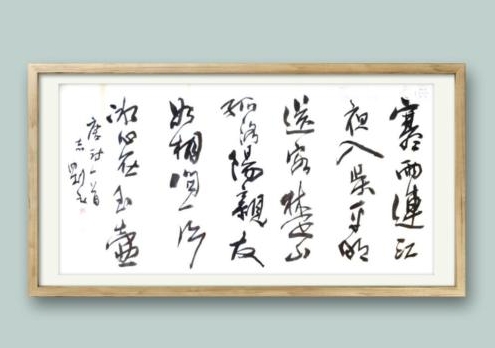 寒雨連江
夜入吳平明
送客楚山
孤洛陽親友
如相問一片
冰心在玉壺
唐诗一首